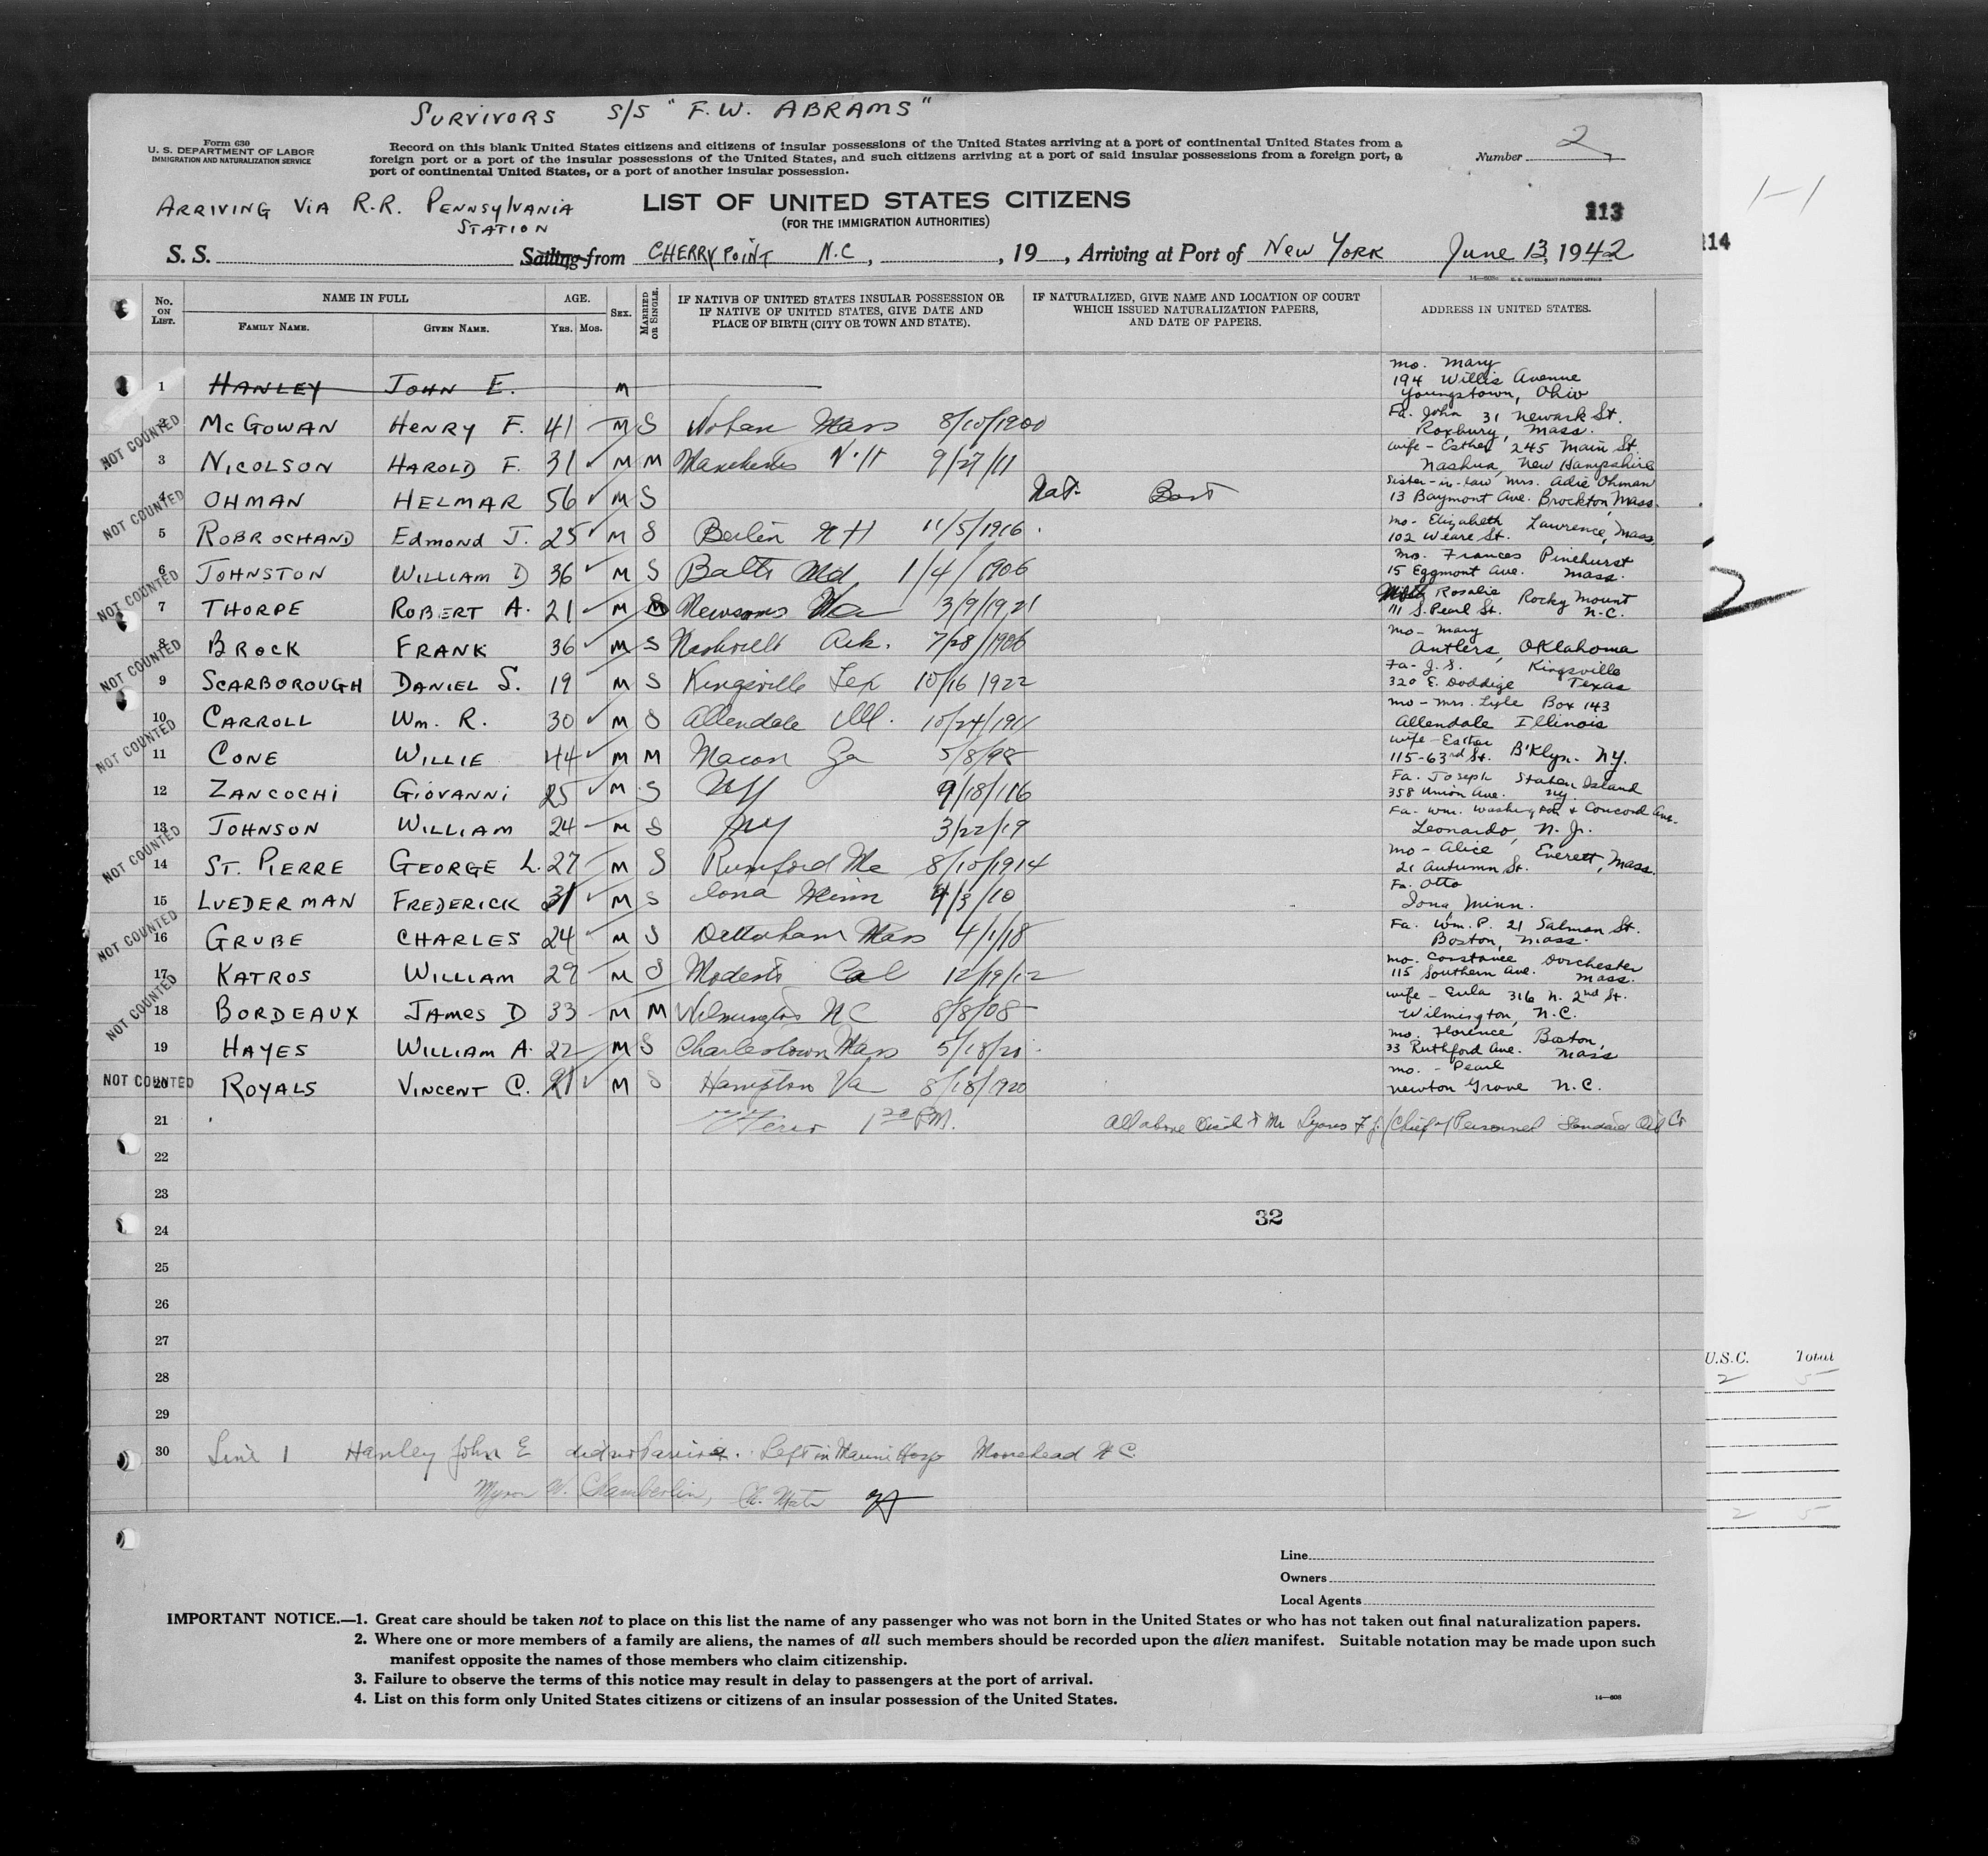 SURVIVORS S/S "F.W. ABRAMS"
Form 630
U. S. DEPARTMENT OF LABOR
IMMIGRATION AND NATURALIZATION SERVICE
Record on this blank United States citizens and citizens of insular possessions of the United States arriving at a port of continental United States from a
foreign port or a port of the insular possessions of the United States, and such citizens arriving at a port of said insular possessions from a foreign port, a
port of continental United States, or a port of another insular possession.
Number 2
ARRIVING VIA R.R. PENNSYLVANIA
STATION
LIST OF UNITED STATES CITIZENS
(FOR THE IMMIGRATION AUTHORITIES)
113
114
1-1
S. S. Sailing from CHERRY POINT N.C., , 19 , Arriving at Port of NEW YORK June 13, 1942
14—608 U. S. GOVERNMENT PRINTING OFFICE
No. ON LIST. NAME IN FULL FAMILY NAME. GIVEN NAME. AGE. Yrs. Mos. SEX. MARRIED OR SINGLE. IF NATIVE OF UNITED STATES INSULAR POSSESSION OR IF NATIVE OF UNITED STATES, GIVE DATE AND PLACE OF BIRTH (CITY OR TOWN AND STATE). IF NATURALIZED, GIVE NAME AND LOCATION OF COURT WHICH ISSUED NATURALIZATION PAPERS, AND DATE OF PAPERS. ADDRESS IN UNITED STATES.
1 HANLEY JOHN E. M mo. Mary 194 Willis Avenue Youngstown, Ohio
2 McGOWAN HENRY F. 41 M S Mass 8/10/1900 Fa. John 31 Newark St. Roxbury, Mass.
NOT COUNTED
3 NICOLSON HAROLD F. 31 M M Manchester N.H 9/27/11 wife - Esther 245 Main St. Nashua, New Hampshire
4 OHMAN HELMAR 56 M S Nat. Bost Sister-in-law Mrs. Adie Ohman 13 Baymont Ave. Brockton, Mass.
NOT COUNTED
5 ROBROCHAND Edmond J. 25 M S Berlin N H 11/5/1916 mo- Elizabeth 102 Weare St. Lawrence, Mass.
6 JOHNSTON WILLIAM D 36 M S Balto Md. 1/4/1906 mo. Frances Pinehurst 15 Eggmont Ave. Mass.
NOT COUNTED
7 THORPE ROBERT A. 21 M M Newsoms Va 3/9/1921 Rosalie 111 S. Pearl St. Rocky Mount N.C.
8 BROCK FRANK 36 M S Nashville Ark. 7/28/1906 mo- Mary Antlers, Oklahoma
NOT COUNTED
9 SCARBOROUGH DANIEL S. 19 M S Kingsville Tex 10/16 1922 Fa- J. S. Kingsville 320 E. Doddige Texas
10 CARROLL Wm. R. 30 M S Allendale Ill. 10/24/1911 mo- Mrs. Lyle Box 143 Allendale Illinois
NOT COUNTED
11 CONE WILLIE 44 M M Macon Ga 5/8/98 wife - Esther 115-63rd St. B'klyn. N.Y.
12 ZANCOCHI GIOVANNI 25 M S NY 9/18/16 Fa. Joseph Staten Island 358 Union Ave. NY.
13 JOHNSON WILLIAM 24 M S NY 3/22/19 Fa. Wm. Washington & Concord Ave. Leonardo, N. J.
NOT COUNTED
14 ST. PIERRE GEORGE L. 27 M S Rumford Me 8/10/1914 mo- Alice Everett, Mass. 21 Autumn St.
15 LUEDERMAN FREDERICK 31 M S Iona Minn 4/3/10 Fa. Otto Iona, Minn.
16 GRUBE CHARLES 24 M S Mass 4/1/18 Fa. Wm. P. 21 Salman St. Boston, Mass.
NOT COUNTED
17 KATROS WILLIAM 29 M S Modesto Cal 12/19/12 mo. Constance Dorchester 115 Southern Ave. Mass.
18 BORDEAUX JAMES D 33 M M Wilmington NC 8/8/08 wife - Eula 316 N. 2nd St. Wilmington, N.C.
NOT COUNTED
19 HAYES WILLIAM A. 22 M S Charlestown Mass 5/18/20 mo. Florence Boston, 33 Ruthford Ave. Mass
20 ROYALS VINCENT C. 21 M S Hampton Va 8/18/1920 mo. - Pearl Newton Grove N.C.
NOT COUNTED
21 1 30 PM. All above Mr Lyons Chief of Personnel Standard Oil Co
22
23
24
32
25
26
27
28
29
30 Line 1 Hanley John E did not arrive. Left in Marine Hosp Moorehead N C.
Myron W. Chamberlin, Ch. Mate
2
U.S.C. Total
2 5
2 5
Line
Owners
Local Agents
IMPORTANT NOTICE.—1. Great care should be taken not to place on this list the name of any passenger who was not born in the United States or who has not taken out final naturalization papers.
2. Where one or more members of a family are aliens, the names of all such members should be recorded upon the alien manifest. Suitable notation may be made upon such
manifest opposite the names of those members who claim citizenship.
3. Failure to observe the terms of this notice may result in delay to passengers at the port of arrival.
4. List on this form only United States citizens or citizens of an insular possession of the United States.
14—608